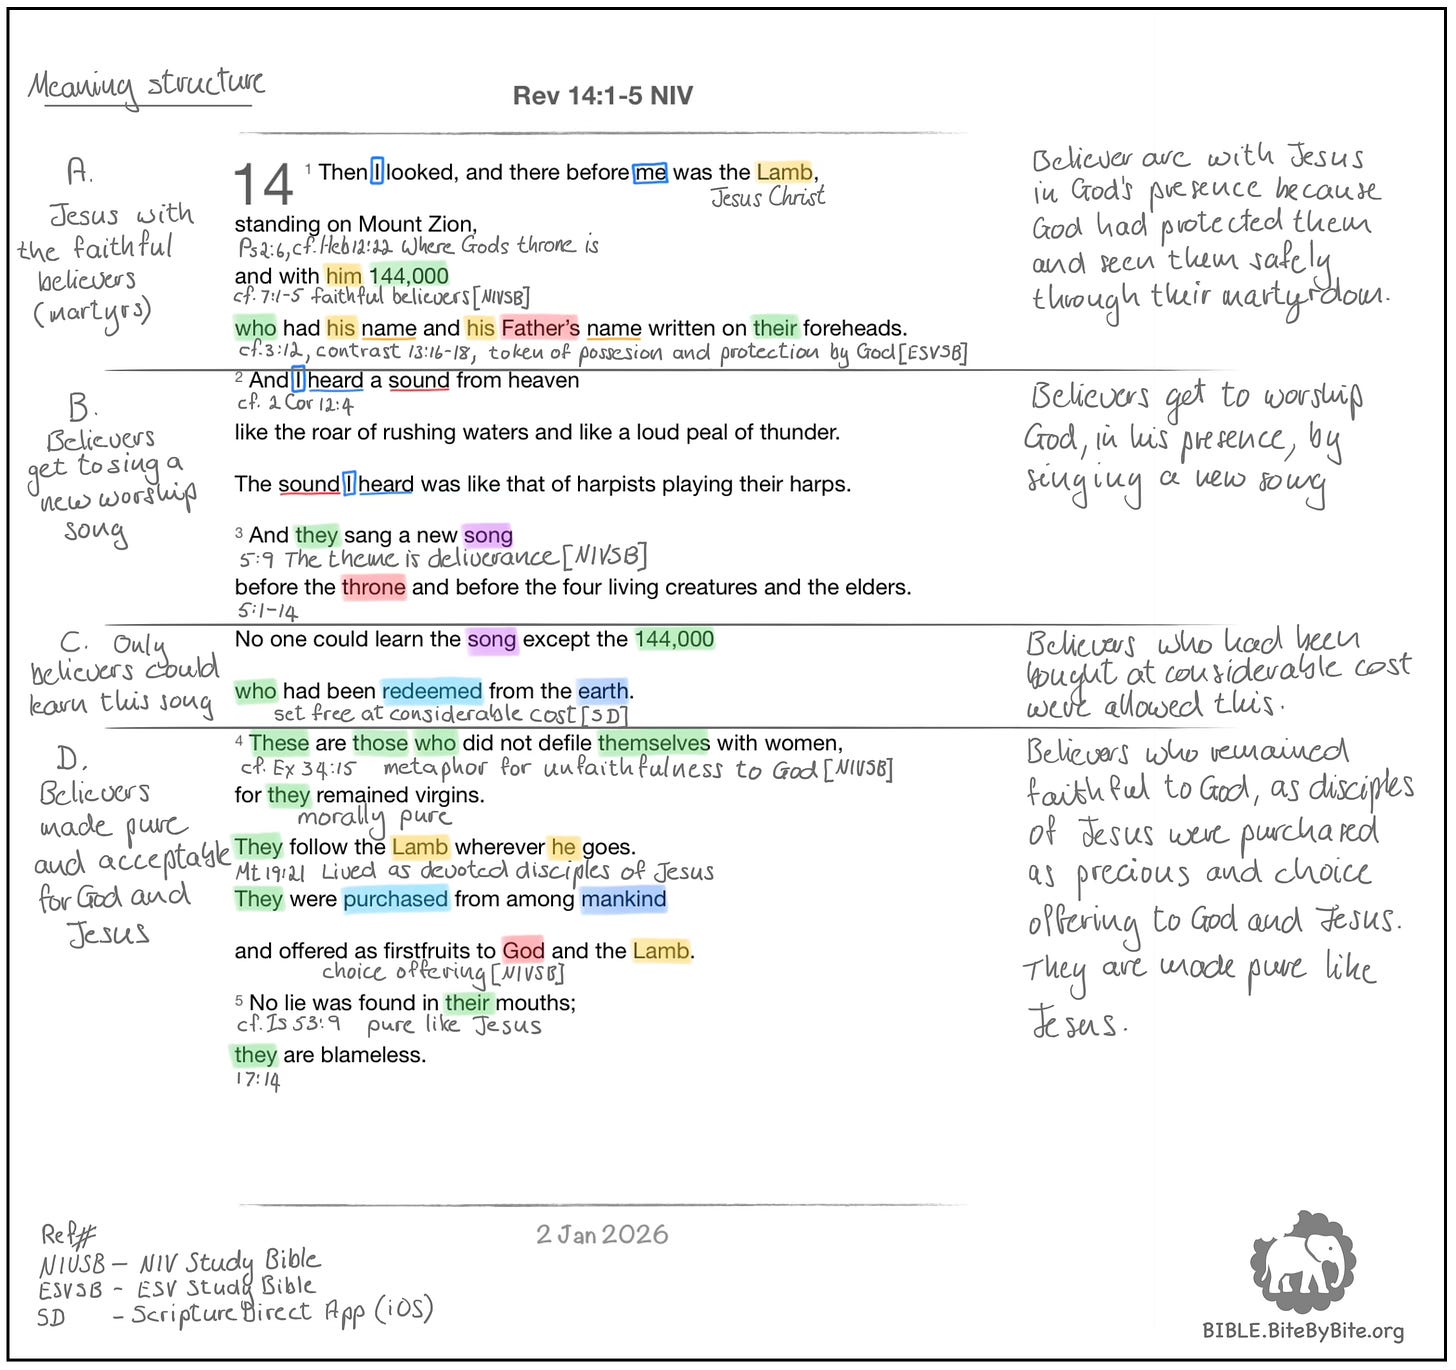 Meaning structure
Rev 14:1-5 NIV
A.
Jesus with
the faithful
believers
(martyrs)
14 1 Then I looked, and there before me was the Lamb,
Jesus Christ
standing on Mount Zion,
Ps2:6, cf. Heb12:22 Where Gods throne is
and with him 144,000
cf. 7:1-5 faithful believers [NIVSB]
who had his name and his Father's name written on their foreheads.
cf. 3:12, contrast 13:16-18, token of possesion and protection by God [ESVSB]
Believer are with Jesus
in God's presence because
God had protected them
and seen them safely
through their martyrdom.
B.
Believers
get to sing a
new worship
song
2 And I heard a sound from heaven
cf. 2 Cor 12:4
like the roar of rushing waters and like a loud peal of thunder.
The sound I heard was like that of harpists playing their harps.
3 And they sang a new song
5:9 The theme is deliverance [NIVSB]
before the throne and before the four living creatures and the elders.
5:1-14
Believers get to worship
God, in his presence, by
singing a new song
C. Only
believers could
learn this song
No one could learn the song except the 144,000
who had been redeemed from the earth.
set free at considerable cost [SD]
Believers who had been
bought at considerable cost
were allowed this.
D.
Believers
made pure
and acceptable
for God and
Jesus
4 These are those who did not defile themselves with women,
cf. Ex 34:15 metaphor for unfaithfulness to God [NIVSB]
for they remained virgins.
morally pure
They follow the Lamb wherever he goes.
Mt 19:21 Lived as devoted disciples of Jesus
They were purchased from among mankind
and offered as firstfruits to God and the Lamb.
choice offering [NIVSB]
5 No lie was found in their mouths;
cf. Is 53:9 pure like Jesus
they are blameless.
17:14
Believers who remained
faithful to God, as disciples
of Jesus were purchased
as precious and choice
offering to God and Jesus.
They are made pure like
Jesus.
Ref#
NIVSB - NIV Study Bible
ESVSB - ESV Study Bible
SD - ScriptureDirect App (iOS)
2 Jan 2026
BIBLE.BiteByBite.org